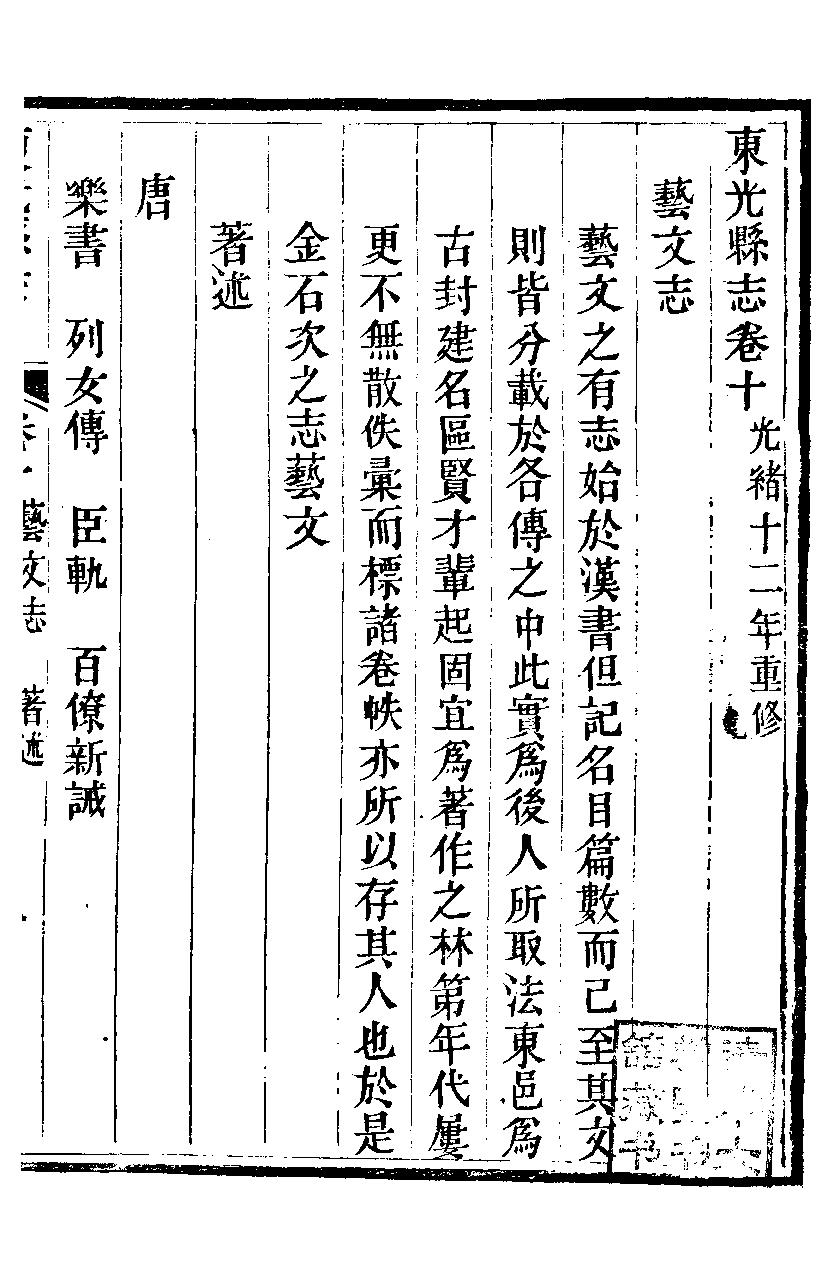 東光縣志卷十 光緒十二年重修
藝文志
藝文之有志始於漢書但記名目篇數而已至其文
則皆分載於各傳之中此實爲後人所取法東邑爲
古封建名區賢才輩起固宜爲著作之林第年代屢
更不無散佚彙而標諸卷帙亦所以存其人也於是
金石次之志藝文
著述
唐
樂書 列女傳 臣軌 百僚新誡
藝文志 著述